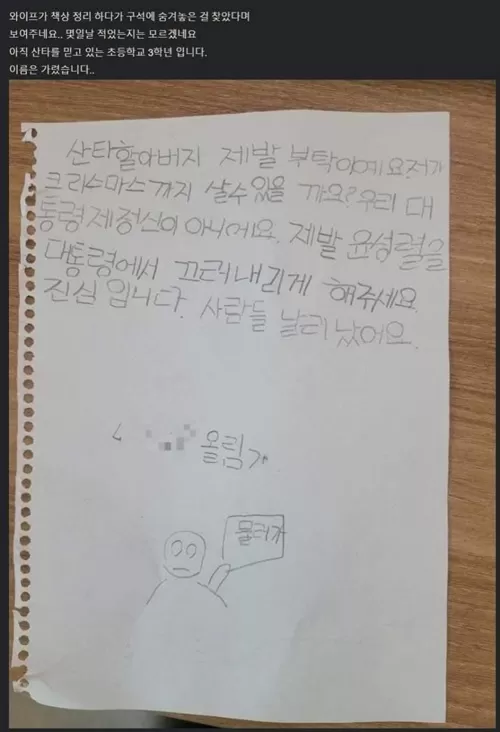 와이프가 책상 정리 하다가 구석에 숨겨놓은 걸 찾았다며
보여주네요.. 몇일날 적었는지는 모르겠네요
아직 산타를 믿고 있는 초등학교 3학년 입니다.
이름은 가렸습니다..
산타할아버지 제발 부탁이예요. 저가
크리스마스까지 살수 있을 까요? 우리 대
통령 제정신이 아니에요. 제발 윤성렬을
대통령에서 끄러내리게 해주세요.
진심 입니다. 사람들 날리 났어요.
올림
물러가